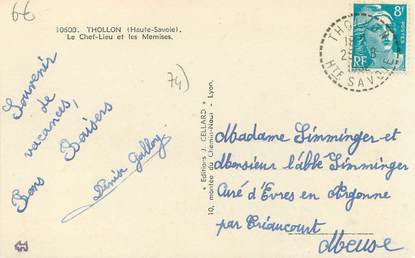 6€
10600. THOLLON (Haute-Savoie).
Le Chef-Lieu et les Memises.
74)
Souvenir
de
vacances,
Bons Baisers
Denise Galloy
* Editions J. CELLARD *
10, montée du Chemin-Neuf - Lyon.
8F
POSTES
RF
THOLLON
HTE SAVOIE
Madame Simminger et
Monsieur l'abbé Simminger
Curé d'Evres en Argonne
par Triaucourt
Meuse